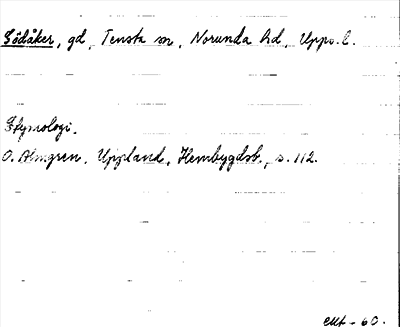 Gödåker, gd, Tensta sn, Norunda hd, Upps. l.
Etymologi.
O. Almgren, Uppland, Hembygdsb., s. 112.
- 60.